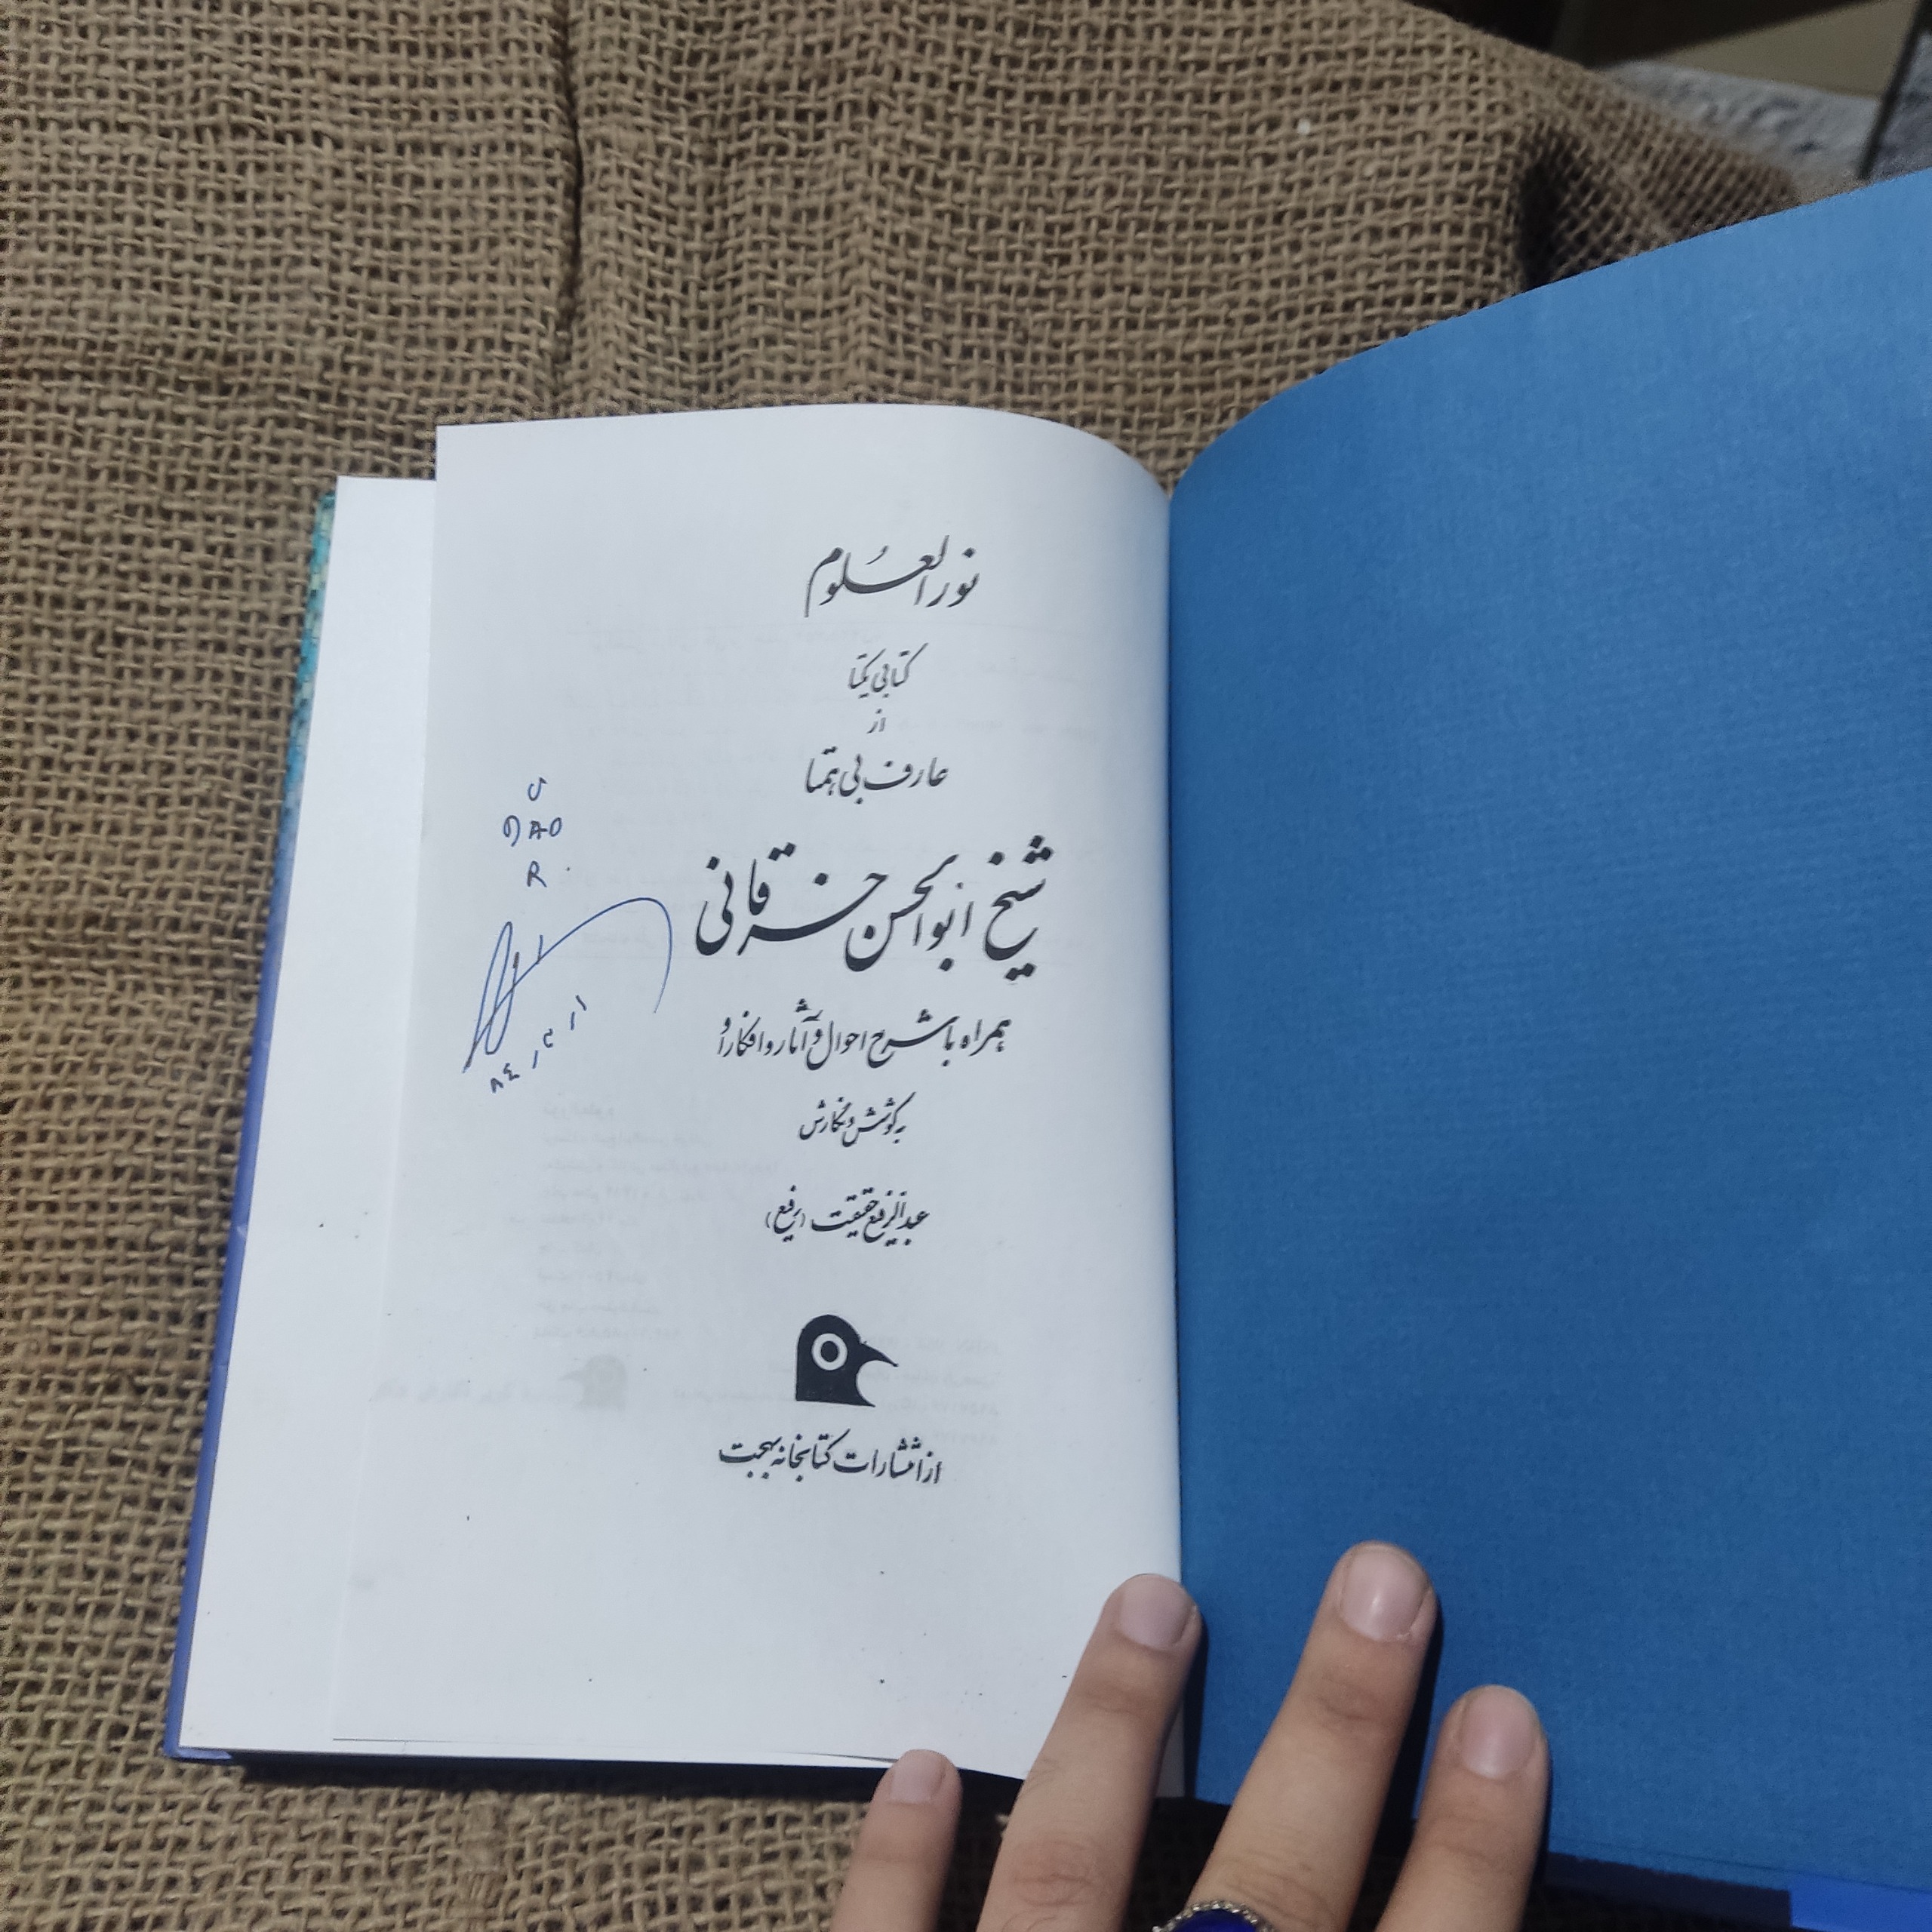 نورالعلوم
کتابی یکتا
از
عارف بی‌همتا
شیخ ابوالحسن خرقانی
همراه با شرح احوال و آثار و افکار او
به کوشش و نگارش
عبدالرفیع حقیقت (رفیع)
از انتشارات کتابخانه بهجت
R